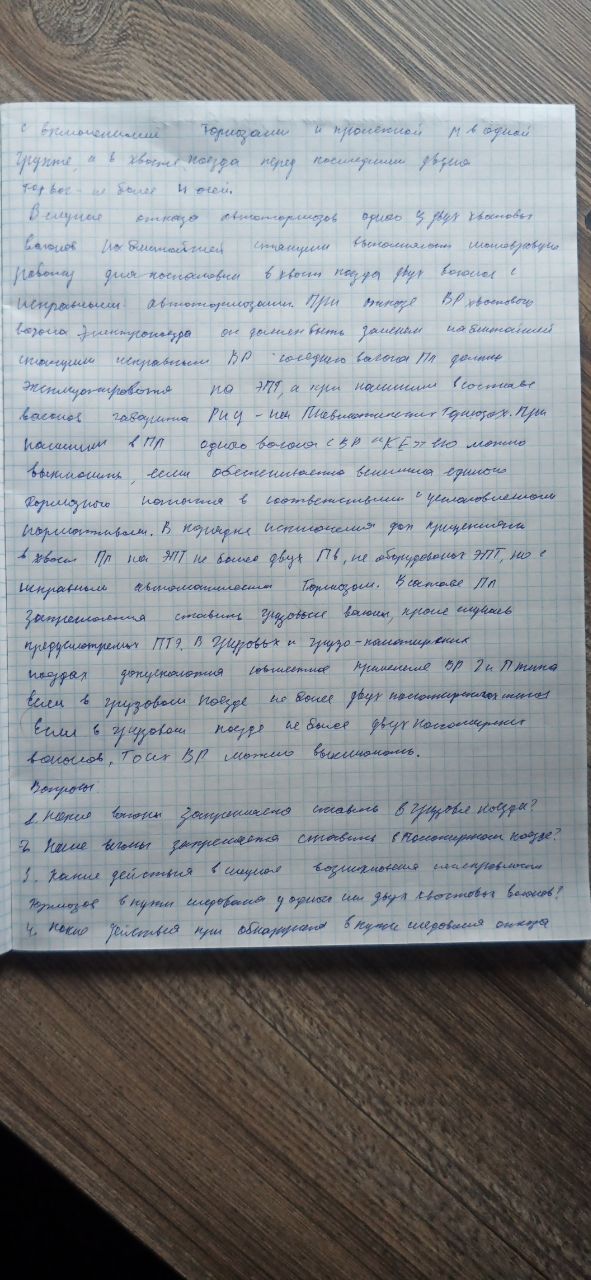 с выключенными тормозами и пролетной м в одной
группе, а в хвосте поезда перед последними двумя
торвог - не более 4 осей.
В случае отказа автотормозов одного из двух хвостовых
вагонов на ближайшей станции выполняют маневровую
работу для постановки в хвост поезда двух вагонов с
исправными автотормозами. При отказе ВР хвостового
вагона электропоезда он должен быть заменен на ближайшей
станции исправным ВР соседнего вагона Пп должны
эксплуатироваться на ЭПТ, а при наличии в составе
вагонов габарита РИЦ - на Пневматических тормозах. При
наличии в ПП одного вагона с ВР "КЕ" его можно
выключить, если обеспечивается величина единого
тормозного нажатия в соответствии с установленными
нормативами. В порядке исключения доп прицеплять
в хвост Пп на ЭПТ не более двух Пв, не оборудованных ЭПТ, но с
исправным автоматическим тормозом. В составе Пп
Запрещается ставить грузовые вагоны, кроме случаев
предусмотренных ПТЭ. В грузовых и грузо-пассажирских
поездах допускается совместное применение ВР Г и П типа
Если в грузовом поезде не более двух пассажирских
Если в грузовом поезде не более двух пассажирских
вагонов, то их ВР можно выключать.
Вопросы
1. Какие вагоны запрещается ставить в грузовые поезда?
2. Какие вагоны запрещается ставить в Пассажирском поезде?
3. Какие действия в случае возникновения неисправности
тормозов в пути следования у одного или двух хвостовых вагонов?
4. Какие действия при обнаружении в пути следования отказа